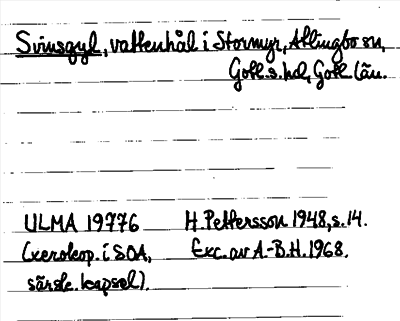 Svinsgyl, vattenhål i Stormyr, Atlingbo sn,
Gotl. s. hd, Gotl. län.
ULMA 19776 H. Pettersson 1948, s. 14.
(xerokop. i SOA, Exc. av A.-B.H. 1968.
särsk. kapsel).